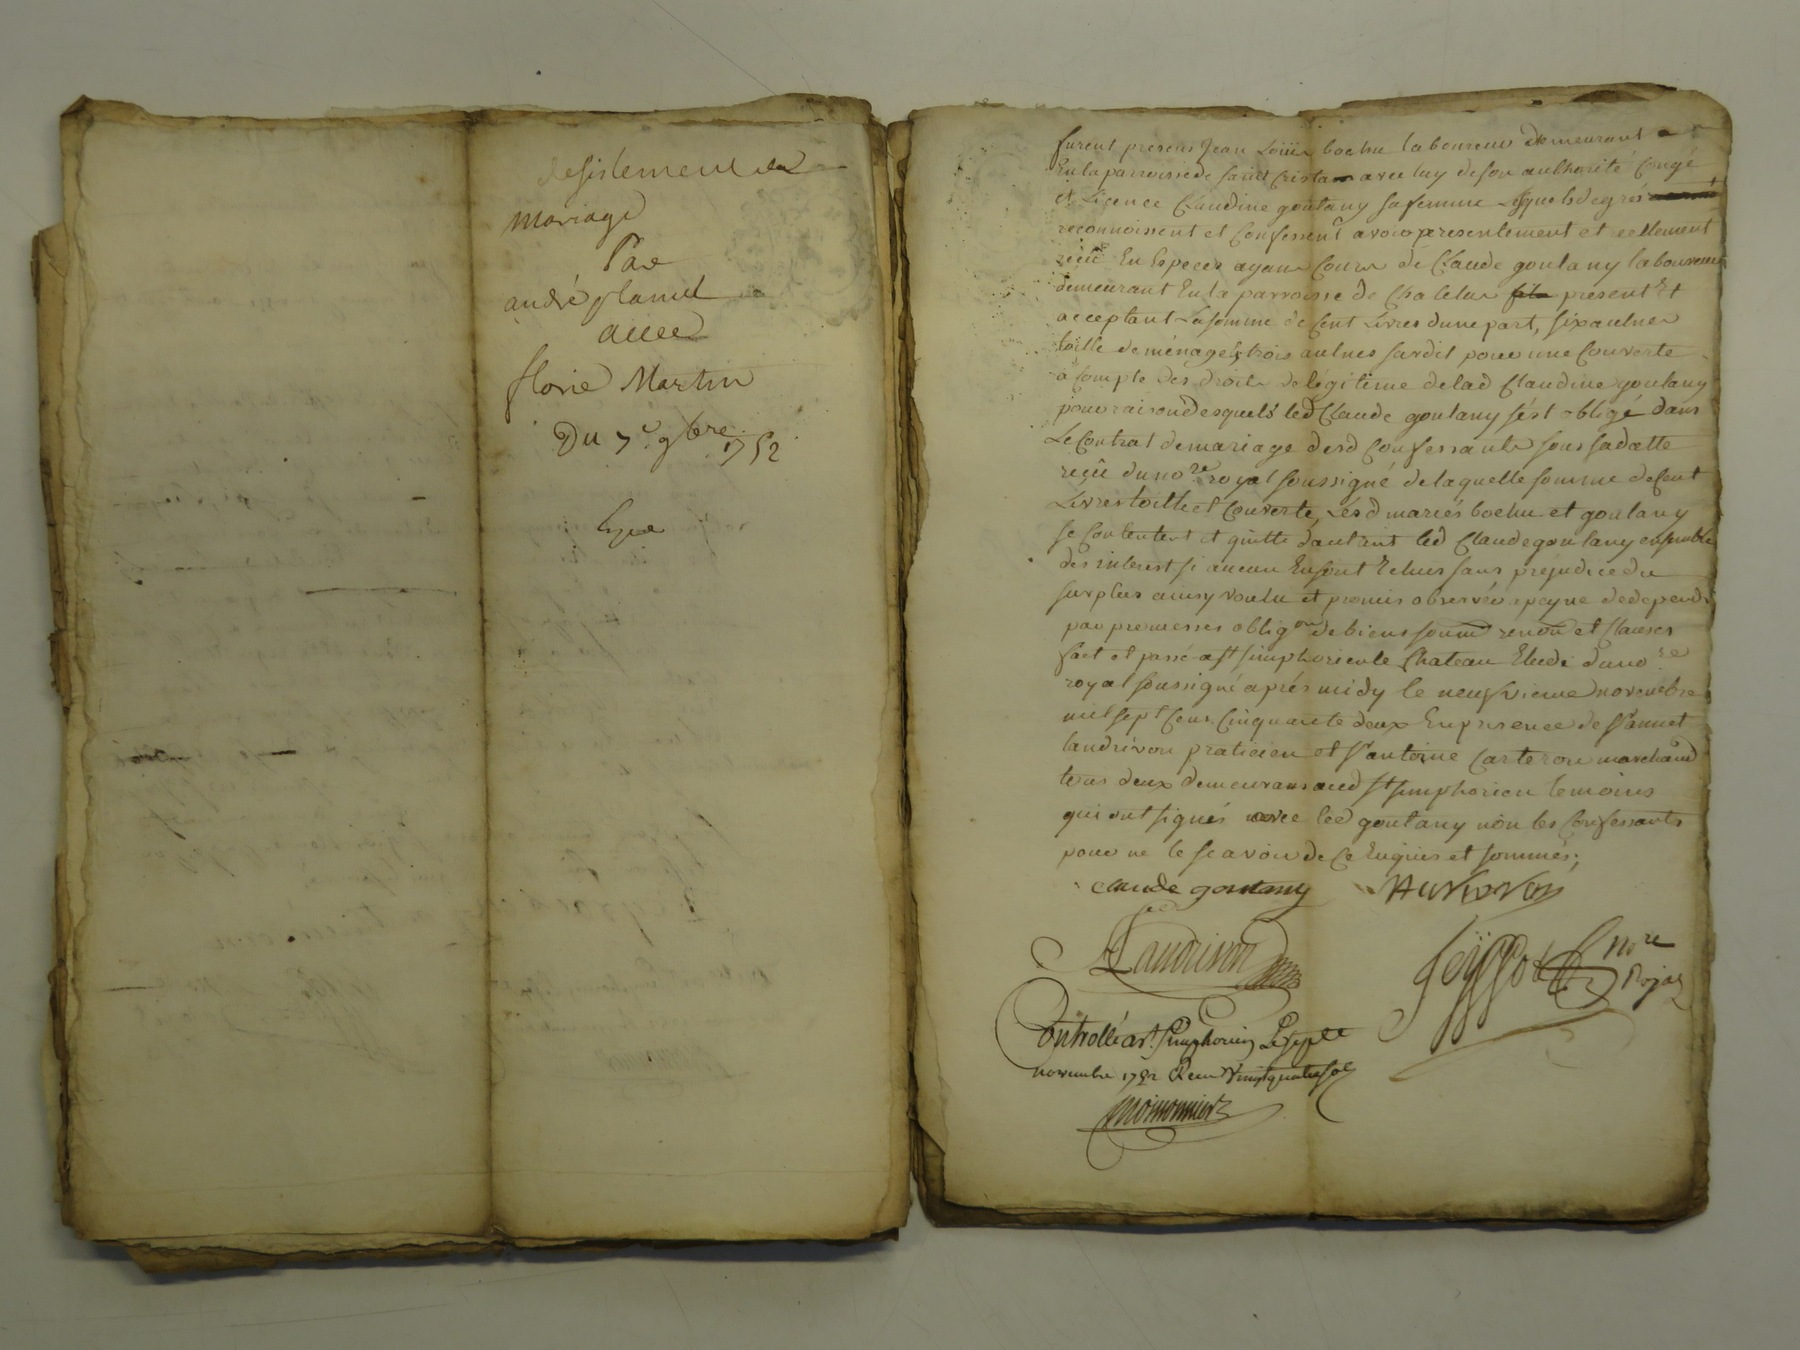 desistement de
mariage
Par
andré planul
avec
florie Martin
Du 7e. 9bre. 1752
Exp.
furent presens Jean Loüis bochu laboureur demeurant
En la parroisse de saint Crista avec luy de son authorité Congé
et Licence Claudine goutany sa femme Lesquels de gré
reconnoissent et Confessent avoir presentement et reellement
reçu En Especes ayans Cours de Claude goutany laboureur
demeurant En la parroisse de Chatelus present Et
acceptant La somme de Cent Livres dune part, six aulnes
toille de ménage et trois aulnes sardit pour une Couverte
a Compte des droits de légitime de lad Claudine goutany
pour raison desquels led Claude goutany s'est obligé dans
Le Contrat de mariage desd Confessants sous sa datte
reçû du nore royal soussigné de laquelle somme de Cent
Livres toille et Couverte, Lesd mariés bochu et goutany
se Contentent et quitte d'autant led Claude goutany ensemble
des interest si aucun En sont Echus sans préjudice du
surplus ainsy voulu et promis observer a peyne de depends
par promesses obligon de biens soumd renon et Clauses
fait et passé a st simphorien le Chateau Etude du nore
royal soussigné aprés midy le neufvieme novembre
mil sept Cens Cinquante deux En presence de sr annet
landrivon praticien et sr antoine Carteron marchand
tous deux demeurans aud st simphorien temoins
qui ont signés avec led goutany non les Confessants
pour ne le scavoir de Ce Enquis et sommés;
claude goutany
Landrivon
nore
Royal
Controllé a st. Simphorien Le sept
novembre 1752 Reçu Vingt quatre sols